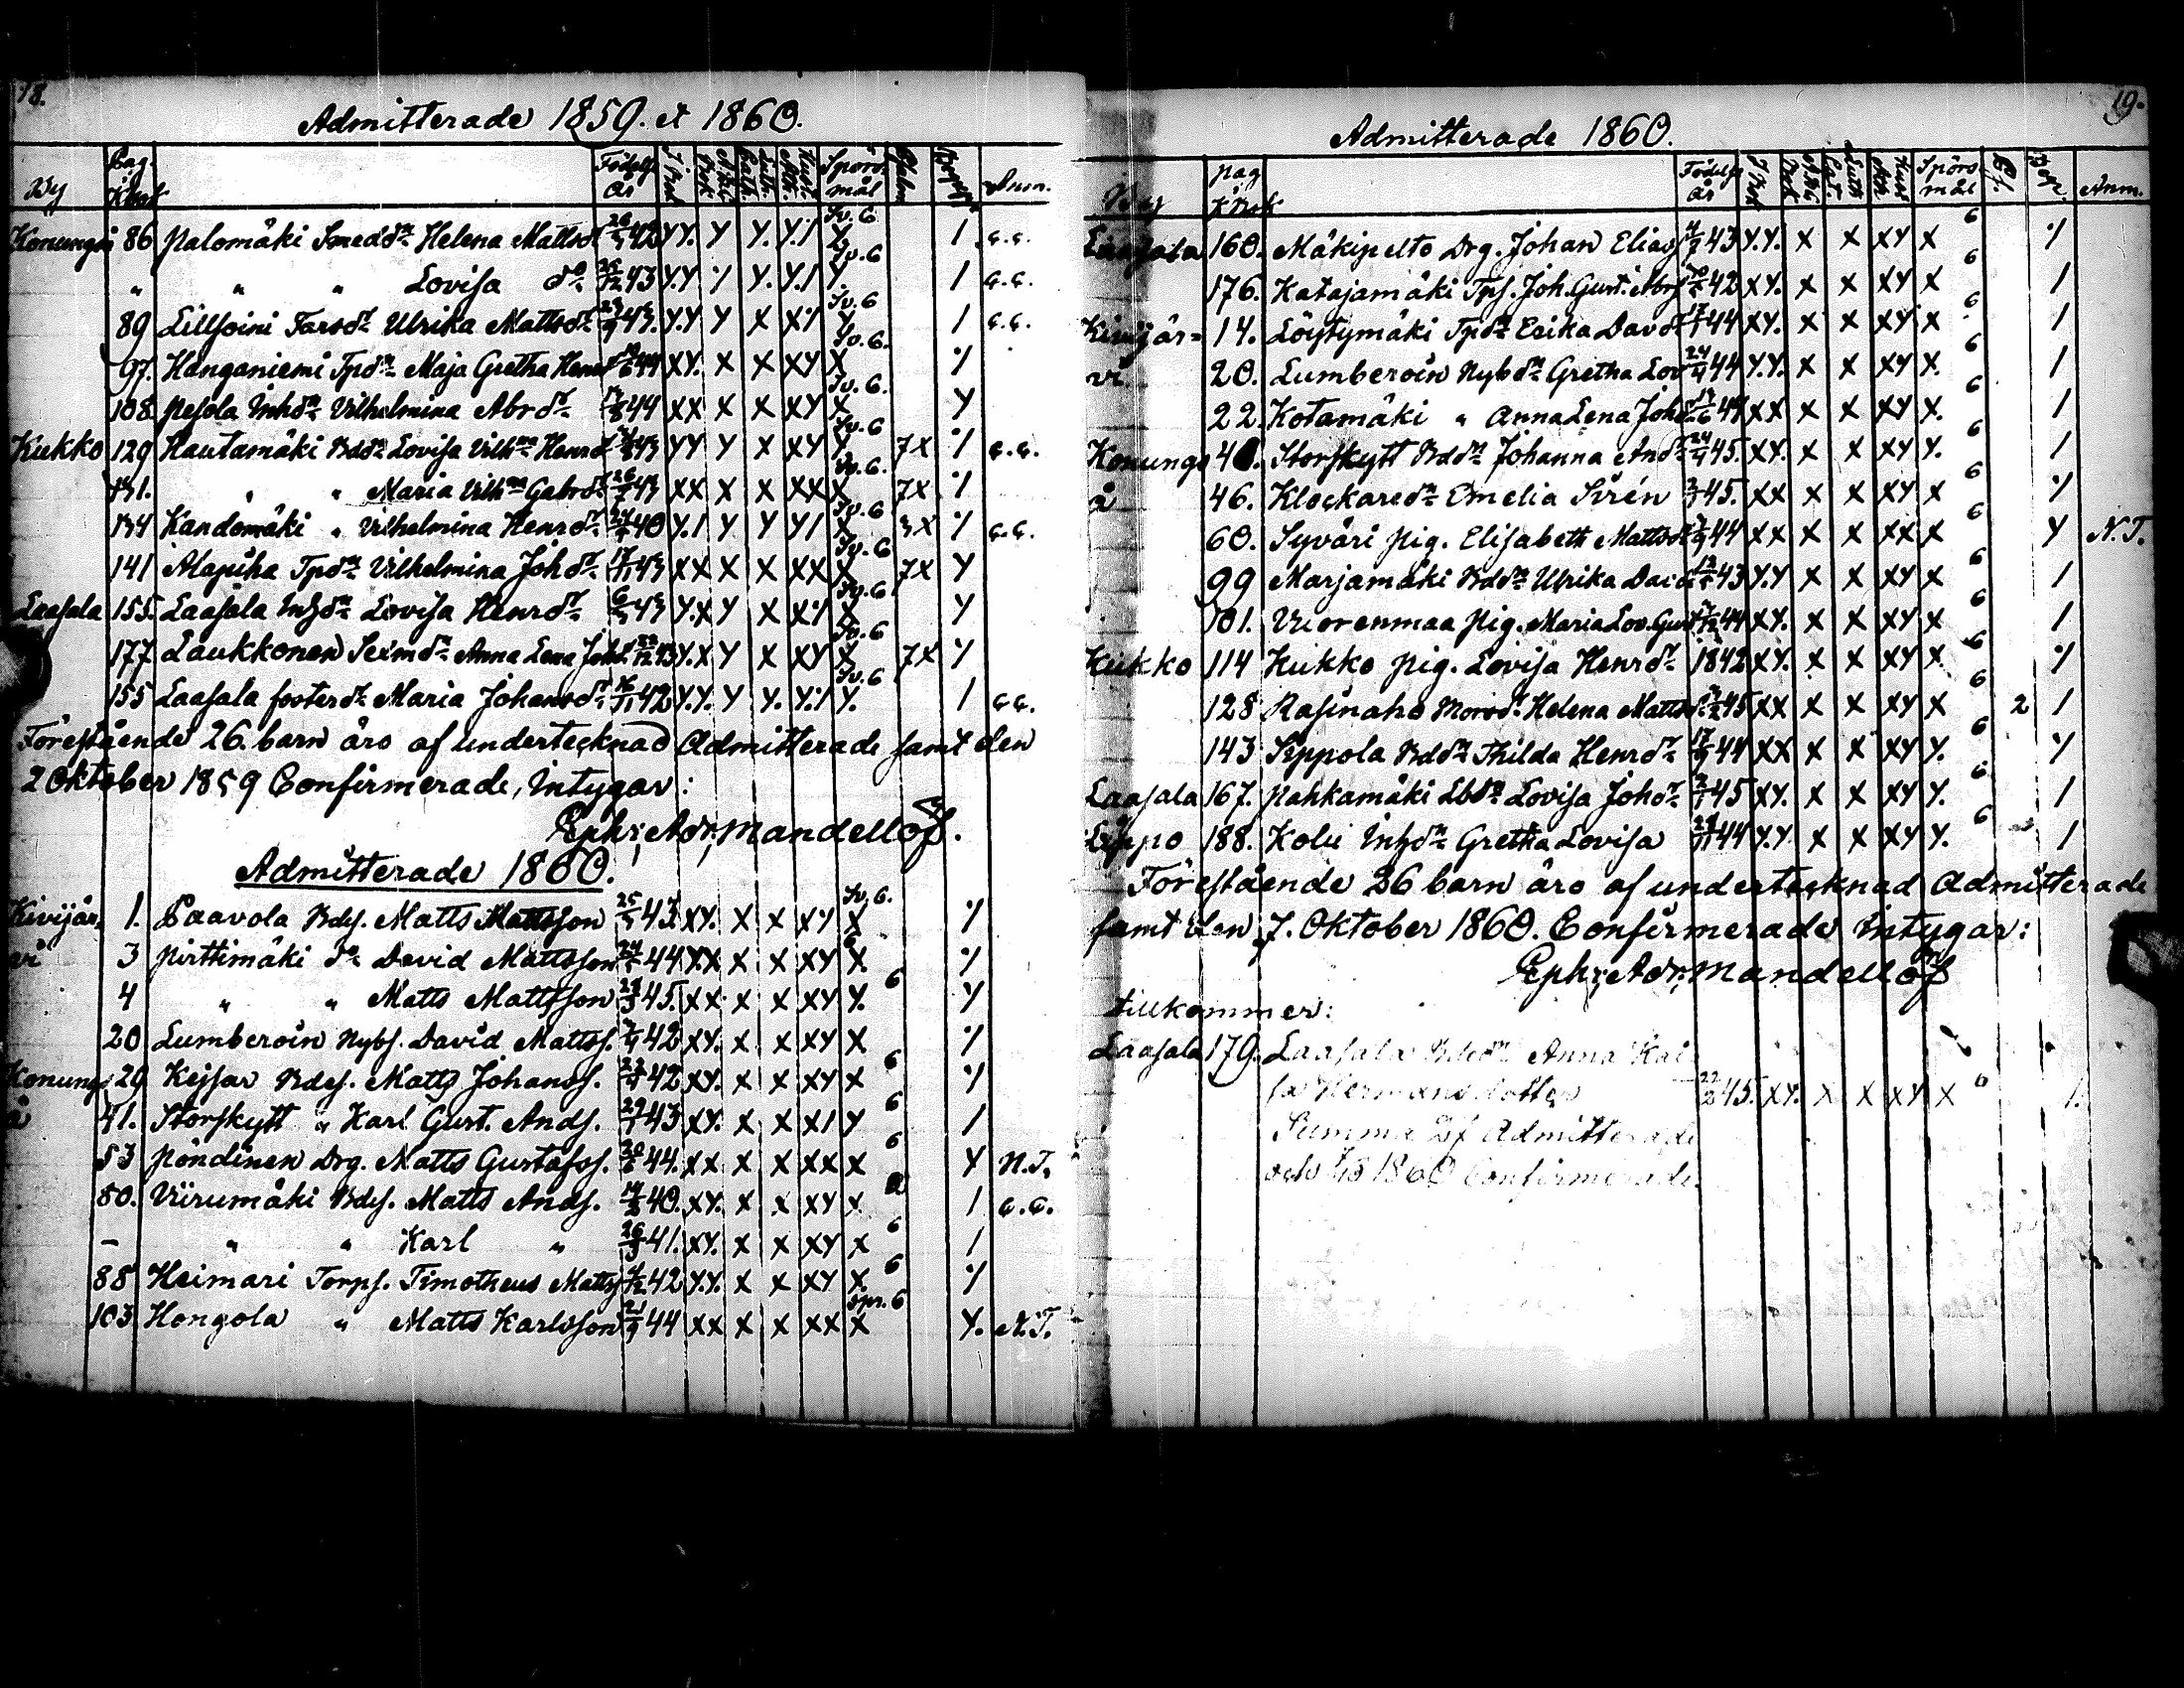 18.
Admitterade 1859. et 1860.
By Pag. Kbok Födelse År Spörsmål Psalm Anm.
Konungså 86 Palomäki Smedd:r Helena Mattsd:r 42 Y Y. Y Y. Y.1 Sv. 6 1 c.c.
„ „ „ Lovisa d:o 26/12 43 Y.Y Y Y. Y.1 Y. Sv. 6 1 c.c.
89 Lillsoini Farsd:r Ulrika Mattsd:r 43. Y.Y Y X X Sv. 6 1 c.c.
97. Hanganiemi Tpd:r Maja Gretha 44 XY. X X XY X Sv. 6.
108. Pesola Inhd:r Vilhelmina Abrd:r 44 XX X X XY X Sv. 6. Y
Kukko 129 Hautamäki Bdd:r Lovisa Vilh:na Henrd:r 43 YY Y X XY Y. Sv. 6 7X c.c.
131. „ „ Maria Vilh:na Gabrd:r 43 XX X X XX X Sv. 6. 7X
134 Kandomäki „ Vilhelmina Henrd:r 40 Y.1 Y Y Y1 X Sv. 6 3X c.c.
141 Alapiha Tpd:r Vilhelmina Johd:r 17/11 43 XX X X XX X Sv. 6 7X Y
Laasala 155. Laasala Inhd:r Lovisa Henrd:r 43 Y.X Y X X X Sv. 6 Y
177 Laukkonen Sexmd:r Anna Lena Johd:r 43 Y.X Y X XY X Sv. 6 7X Y
155 Laasala fosterd:r Maria Johansd:r 16/11 42 Y.Y. Y Y. Y. Y. Sv. 6 1 c.c.
Förestående 26. barn äro af undertecknad Admitterade samt den
2 Oktober 1859 Confirmerade, Intygar:
Eph: Adr: Mandellöf.
Admitterade 1860.
Kivijär- 1. Paavola Bdes. Matts Mattsson 43. XY. X X XY X Sv. 6.
vi 3 Pirttimäki d:o David Mattsson 44 XX X X XY X 6
4 „ „ Matts Mattsson 45. XX X X XY Y. 6
20 Lumberoin Nybs. David Mattss. 42 XY. X X XY X
Konungs 29 Kejsar Bdes. Matts Johanss. 42 XY. X X XY X 6
å 41. Storskytt „ Karl Gust. Ands. 43 XY. X X X1 Y 6 1
53 Pöndinen Drg. Matts Gustafss. 44. XX X X XX X 6 Y N.T.
80. Viirumäki Bdes. Matts Ands. 40. XY. X X XY X 1 c.c.
– „ „ Karl „ 26/3 41. XY. X X XY X 6 1
88 Heimari Torps. Timotheus Matts 42 Y.Y. X X XY X 6
103 Hongola „ Matts Karlsson 21/9 44 XX X X XX X Spr. 6 Y. N.T.
19.
Admitterade 1860.
By pag Kbok Födelse År Spörsmål Ps. Anm.
Laasala 160. Mäkipelto Drg. Johan Elias 43 Y.Y. X X XY X 6
176. Katajamäki Tps. Joh. Gust. Abrs 42 XY. X X XY X 6 1
Kivijär- 14. Löytymäki Tpd:r Erika Davd:r 44 XY. X X XY X 6 1
vi 20. Lumberoin Nybd:r Gretha Lov 44 Y.Y. X X XY X. 6 1
22 Kotamäki „ Anna Lena Joh 44 XX X X XY X. 6 1
Konungs 40. Storskytt Bdd:r Johanna And:r 45. XY. X X XY Y. 6 1
å 46. Klockared:r Emelia Sirén 45. XX X X XY X 6
60. Syväri pig. Elisabeth Mattsd:r 44 XX X X XX X 6 Y N.T.
99 Marjamäki Bdd:r Ulrika Davd 43 Y.Y X X XY X 6 1
101. Vuorenmaa pig. Maria Lov. Gust 44 XY. X X XY X 6 1
Kukko 114 Kukko pig. Lovisa Henrd:r 1842 XY. X X XY X 6
128 Rasinaho Morsd:r Helena Mattsd:r 45 XX X X XY X 6 2 1
143 Seppola Bdd:r Thilda Henrd:r 17/9 44 XX X X XY Y. 6
Laasala 167. Pahkamäki Lbd:r Lovisa Johd:r 45 XY. X X XY Y. 6 1
Lippo 188. Kolu Inhd:r Gretha Lovisa 44 Y.Y X X XY Y. 6 1
Förestående 26 barn äro af undertecknad Admitterade
samt den 7. Oktober 1860. Confirmerade Intygar:
Eph: Adr: Mandellöf
tillkommer:
Laasala 179. Laasala Bdd:r Anna Kai
sa Hermansdotter 22/2 45. XY. X X XY X 6 1.
Summa af Admitterade
och 1860 Confirmerade.